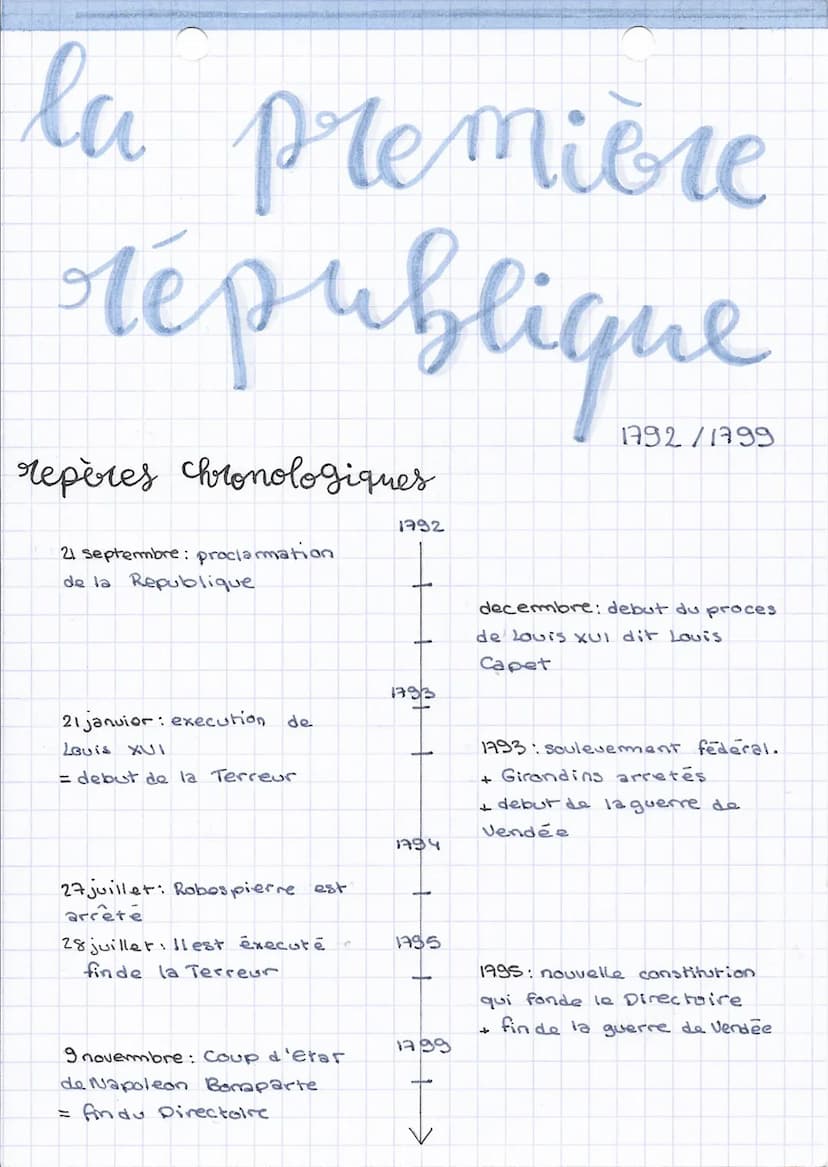 la première
république
1792/1799
repères chronologiques
1792
21 septembre: proclamation
de la Republique
decembre: debut du proces
de Louis XVI dit Louis
Capet
1793
21 janvier: execution de
Louis XVI
= debut de la Terreur
1793: soulevement fédéral.
+ Girondins arretés
+ debut de la guerre de
Vendée
1794
27 juillet: Robespierre est
arrêté
28 juillet: Il est éxecuté
fin de la Terreur
1795
1795: nouvelle constitution
qui fonde le Directoire
+ fin de la guerre de Vendée
1799
9 novembre: Coup d'Etat
de Napoleon Bonaparte
= fin du Directoire